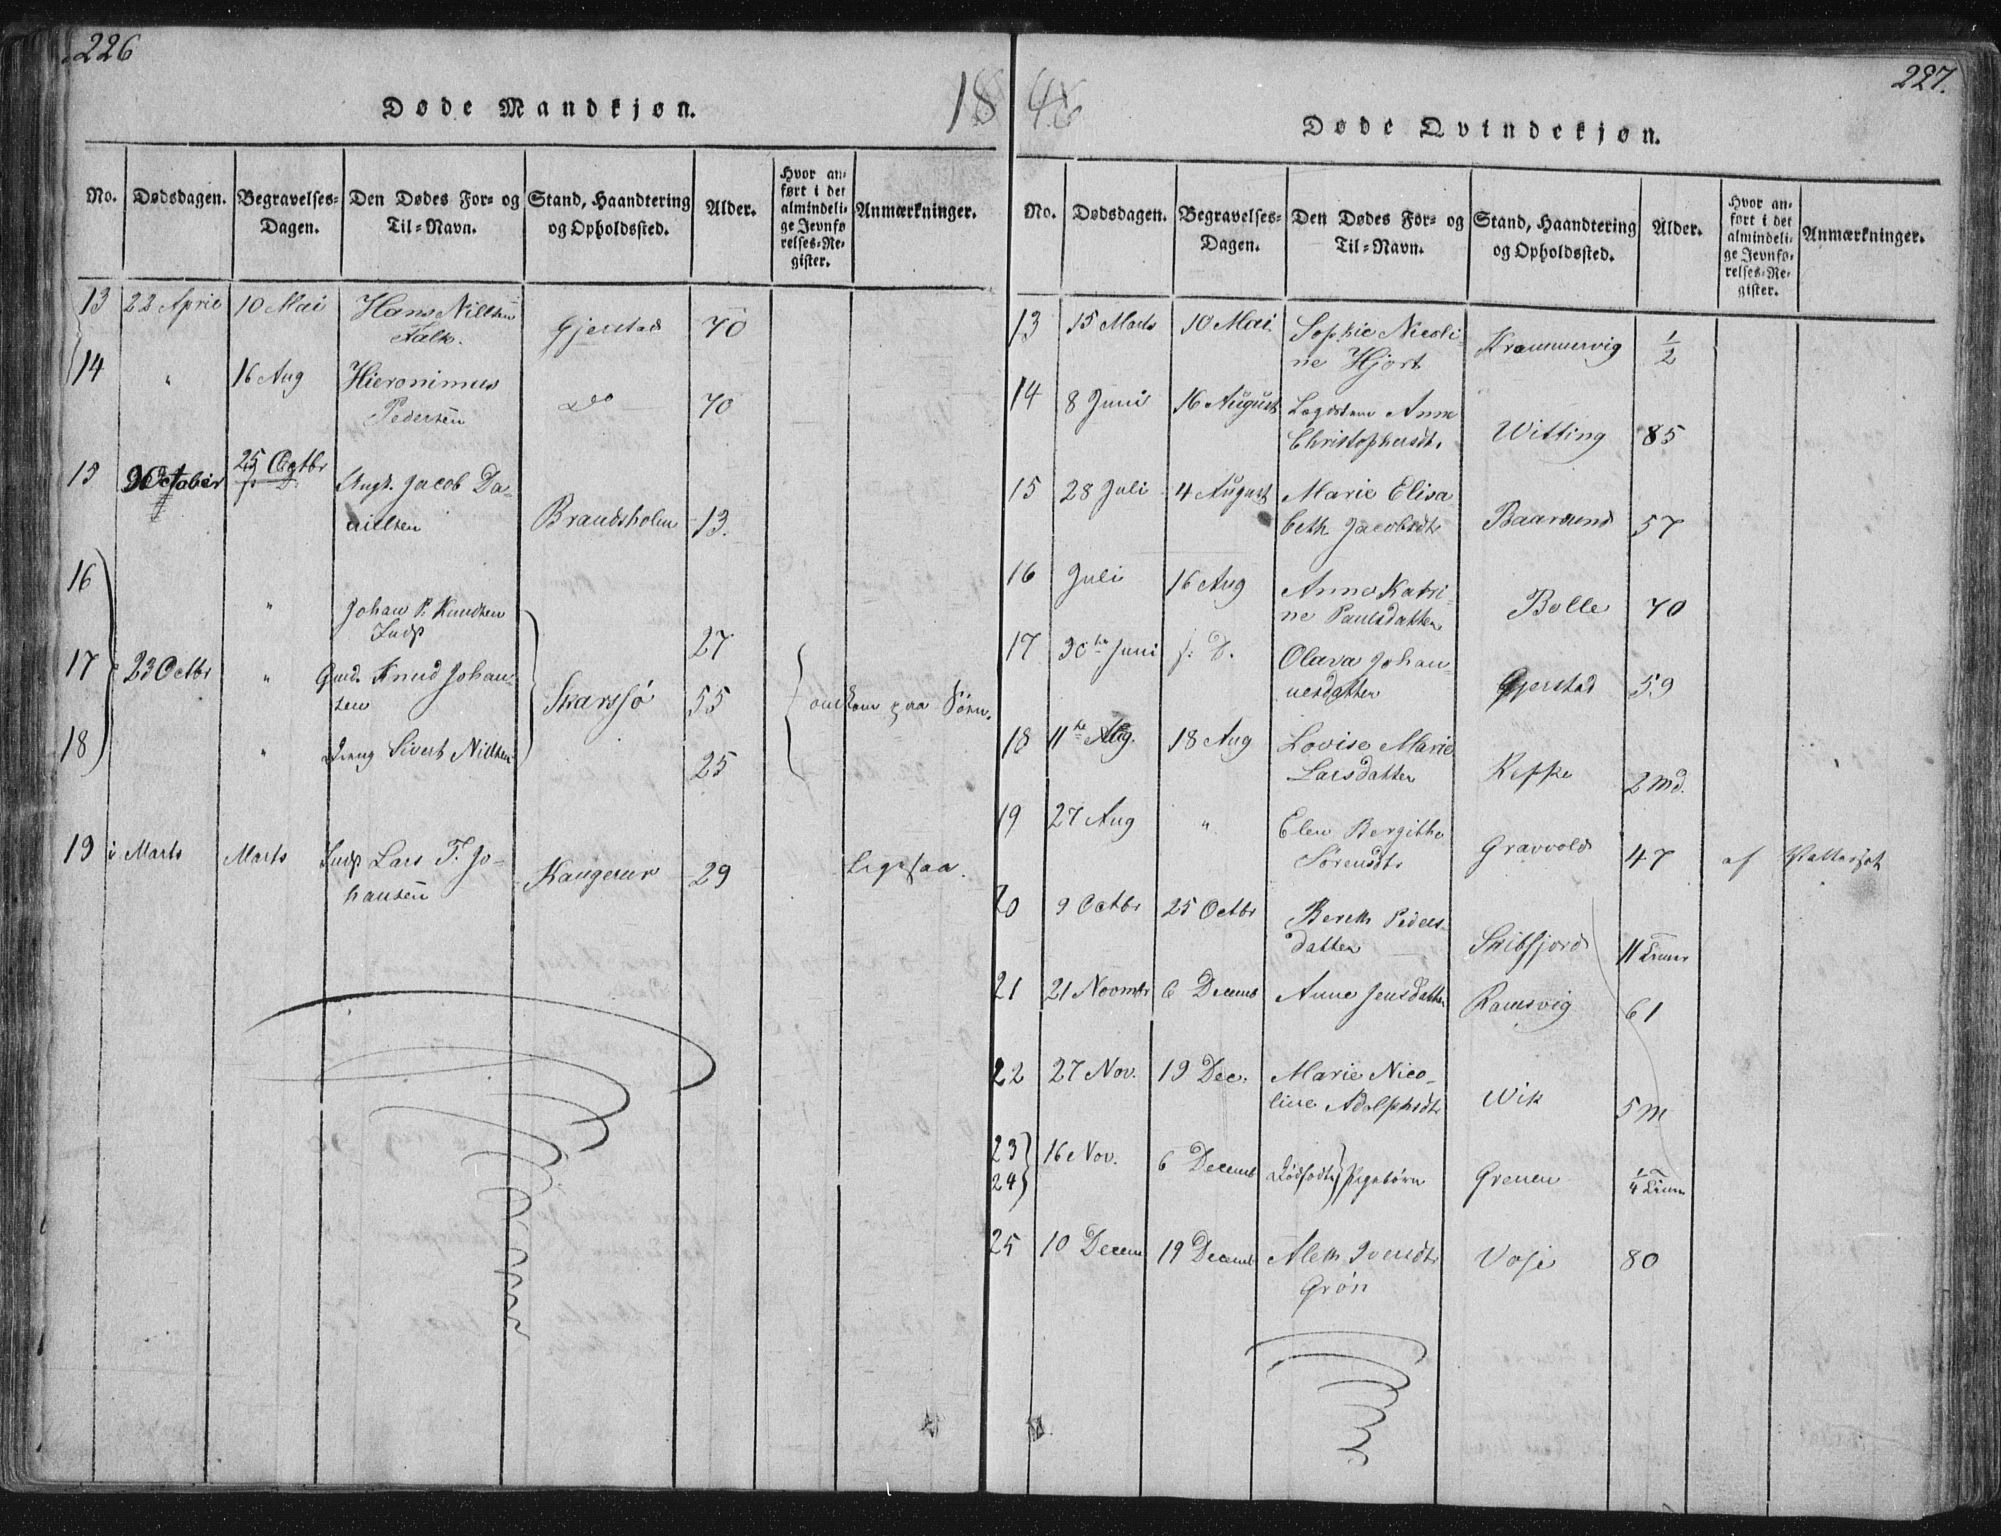 226
1846
227.
Døde Mandkjøn.
No. Dødsdagen. Begravelses-Dagen. Den Dødes For- og Til-Navn. Stand, Haandtering og Opholdssted. Alder. Hvor anført i det almindelige Jevnførelses-Register. Anmærkninger.
13 22 April 10 Mai Hans Nilsen
Falk. Gjerstad 70
14 " 16 Aug Hieronimus
Pedersen do 70
15 October 25 Octbr Ungk. Jacob Da-
nilsen Brandsholm 13.
16 " Johan P. Knudsen
Inds 27
17 23 Octbr " Gmd. Knud Johan-
sen Skarsjö 55 omkom paa Søen.
18 " Dreng Sivert Nilsen 25
19 i Marts Marts Inds Lars T. Jo-
hansen Kaugerur 29 Ligesaa.
Døde Qvindekjøn.
No. Dødsdagen. Begravelses-Dagen. Den Dødes For- og Til-Navn. Stand, Haandtering og Opholdssted. Alder. Hvor anført i det almindelige Jevnførelses-Register. Anmærkninger.
13 15 Marts 10 Mai Sophie Nicoli-
ne Hjort Krammervig 1/2
14 8 Juni 16 August Lægdslem Anne
Christophersdt. Witting 85
15 28 Juli 4 August Marie Elisa
beth Jacobsdtr Baarsund 57
16 Juli 16 Aug Anne Katri-
ne Paulsdatter Bolle 70
17 30te Juni f. D. Olava Johan-
nesdatter Gjerstad 59
18 11te Aug. 18 Aug Lovise Marie
Larsdatter Keppe 2 Md.
19 27 Aug " Elen Bergithe
Sørensdtr Gravvold 47 af
20 9 Octbr 25 Octbr Bereth Peders-
datter Skibfjord 11 Timer
21 21 Novmbr 6 Decemb Anne Jensdatter Ramsvig 61
22 27 Nov. 19 Dec. Marie Nico-
line Adolphsdtr Wik 5 M
23
24 16 Nov. 6 Decemb Dødfødte Pigebörn Grenen 1/4 Time
25 10 Decem 19 Decemb Aleth Iversdtr
Grön Voje 80